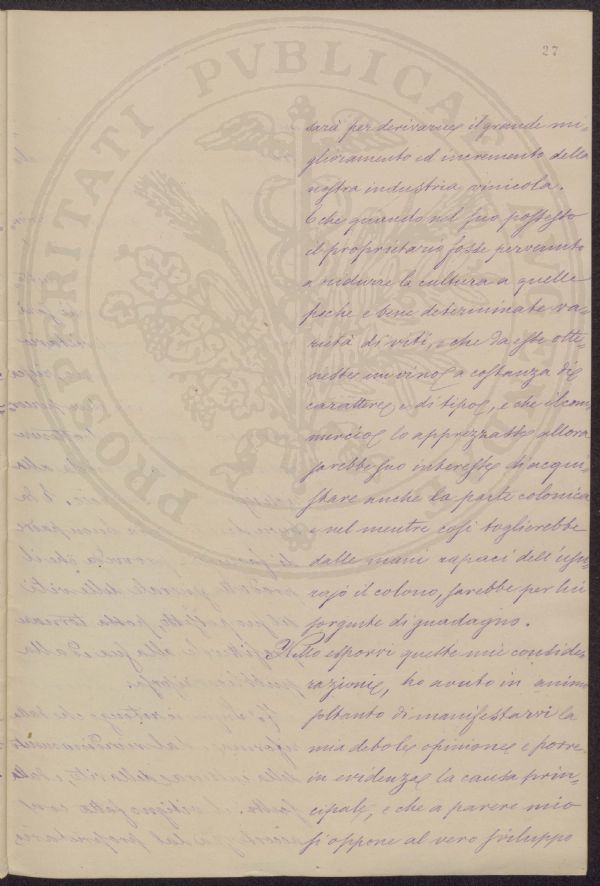 27
PROSPERITATI PVBLICAE AVGENDAE
sarà per derivarne il grande mi=
glioramento ed incremento della
nostra industria vinicola.
E che quando nel suo possesso
il proprietario fosse pervenuto
a ridurre la cultura a quelle
poche e bene determinate va=
rietà di viti, e che da esse otte=
nesse un vino a costanza di
carattere e di tipo, e che il com=
mercio lo apprezzasse allora
sarebbe suo interesse di acqui=
stare anche la parte colonica
e nel mentre così toglierebbe
dalle mani rapaci dell'usu=
rajo il colono, sarebbe per lui
sorgente di guadagno.
Nello esporvi queste mie conside=
razioni, ho avuto in animo
soltanto di manifestarvi la
mia debole opinione e porre
in evidenza la causa prin=
cipale, e che a parere mio
si oppone al vero sviluppo